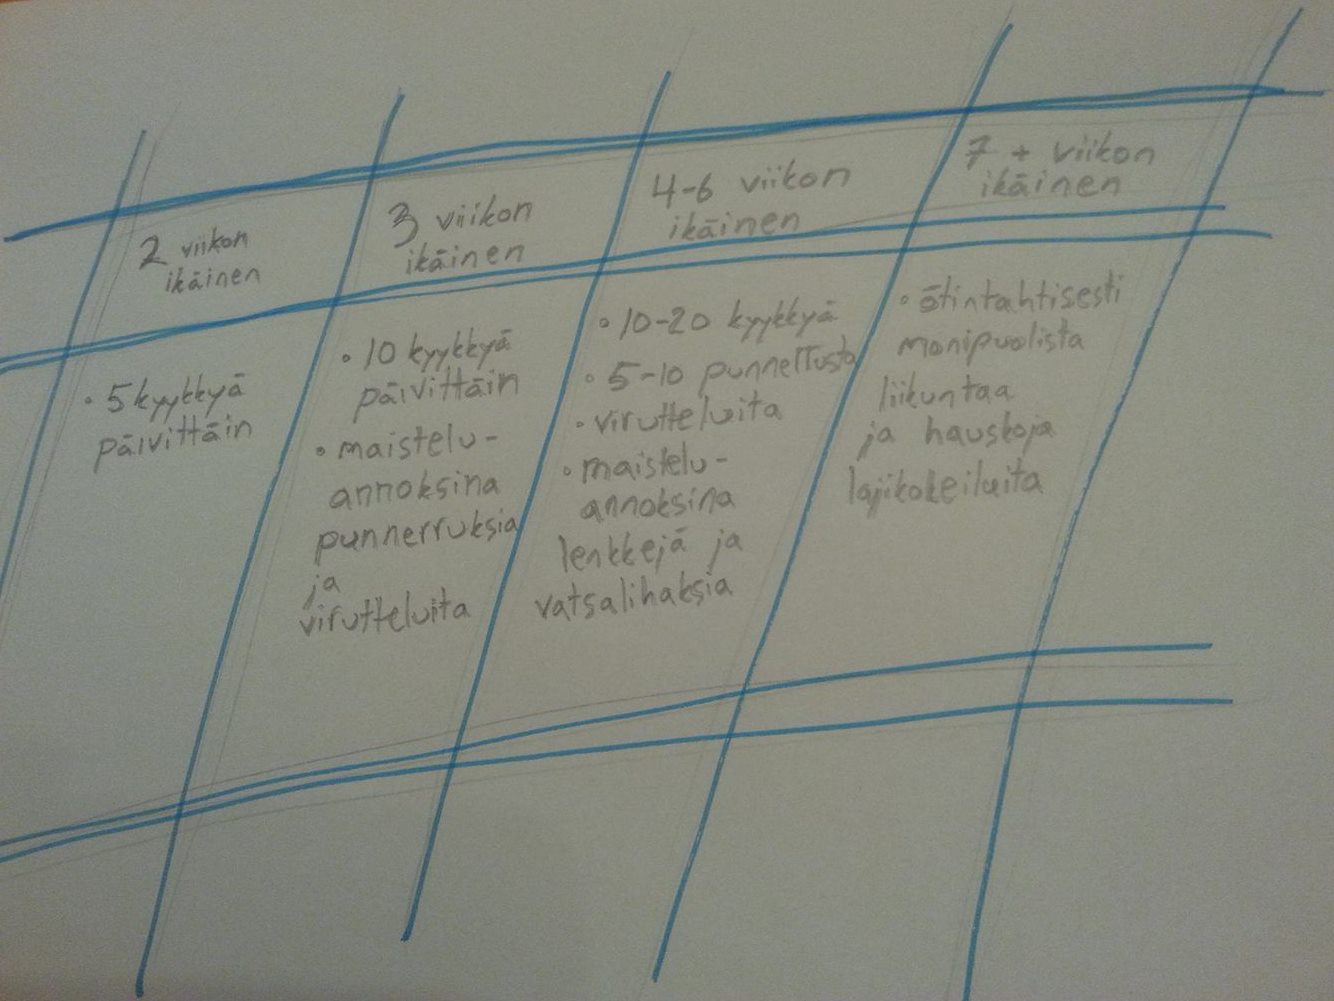 2 viikon
ikäinen
• 5 kyykkyä
päivittäin
3 viikon
ikäinen
• 10 kyykkyä
päivittäin
• maistelu-
annoksina
punnerruksia
ja
virutteluita
4-6 viikon
ikäinen
• 10-20 kyykkyä
• 5-10 punnerrusta
• virutteluita
• maistelu-
annoksina
lenkkejä ja
vatsalihaksia
7 + viikon
ikäinen
• ötintahtisesti
monipuolista
liikuntaa
ja hauskoja
lajikokeiluita